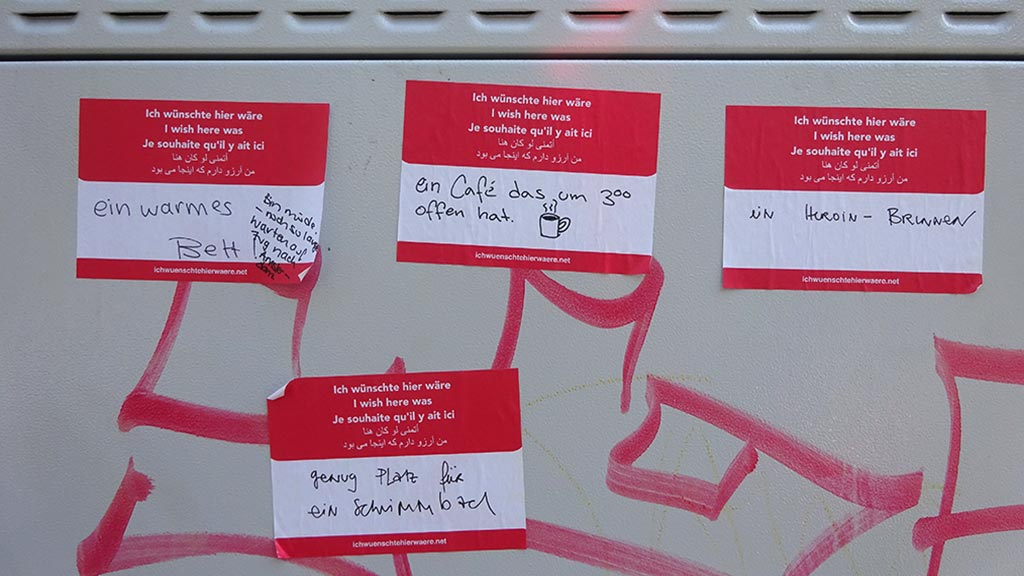 Ich wünschte hier wäre
I wish here was
Je souhaite qu'il y ait ici
أتمنى لو كان هنا
من آرزو دارم که اینجا می بود
ein warmes
Bett
Bin müde.
- noch so lang
warten auf
Zug nach
Amster-
dam
ichwuenschtehierwaere.net
Ich wünschte hier wäre
I wish here was
Je souhaite qu'il y ait ici
أتمنى لو كان هنا
من آرزو دارم که اینجا می بود
ein Café das um 3⁰⁰
offen hat.
ichwuenschtehierwaere.net
Ich wünschte hier wäre
I wish here was
Je souhaite qu'il y ait ici
أتمنى لو كان هنا
من آرزو دارم که اینجا می بود
ein HEROIN - BRUNNEN
ichwuenschtehierwaere.net
Ich wünschte hier wäre
I wish here was
Je souhaite qu'il y ait ici
أتمنى لو كان هنا
من آرزو دارم که اینجا می بود
genug Platz für
ein Schwimmbad
ichwuenschtehierwaere.net